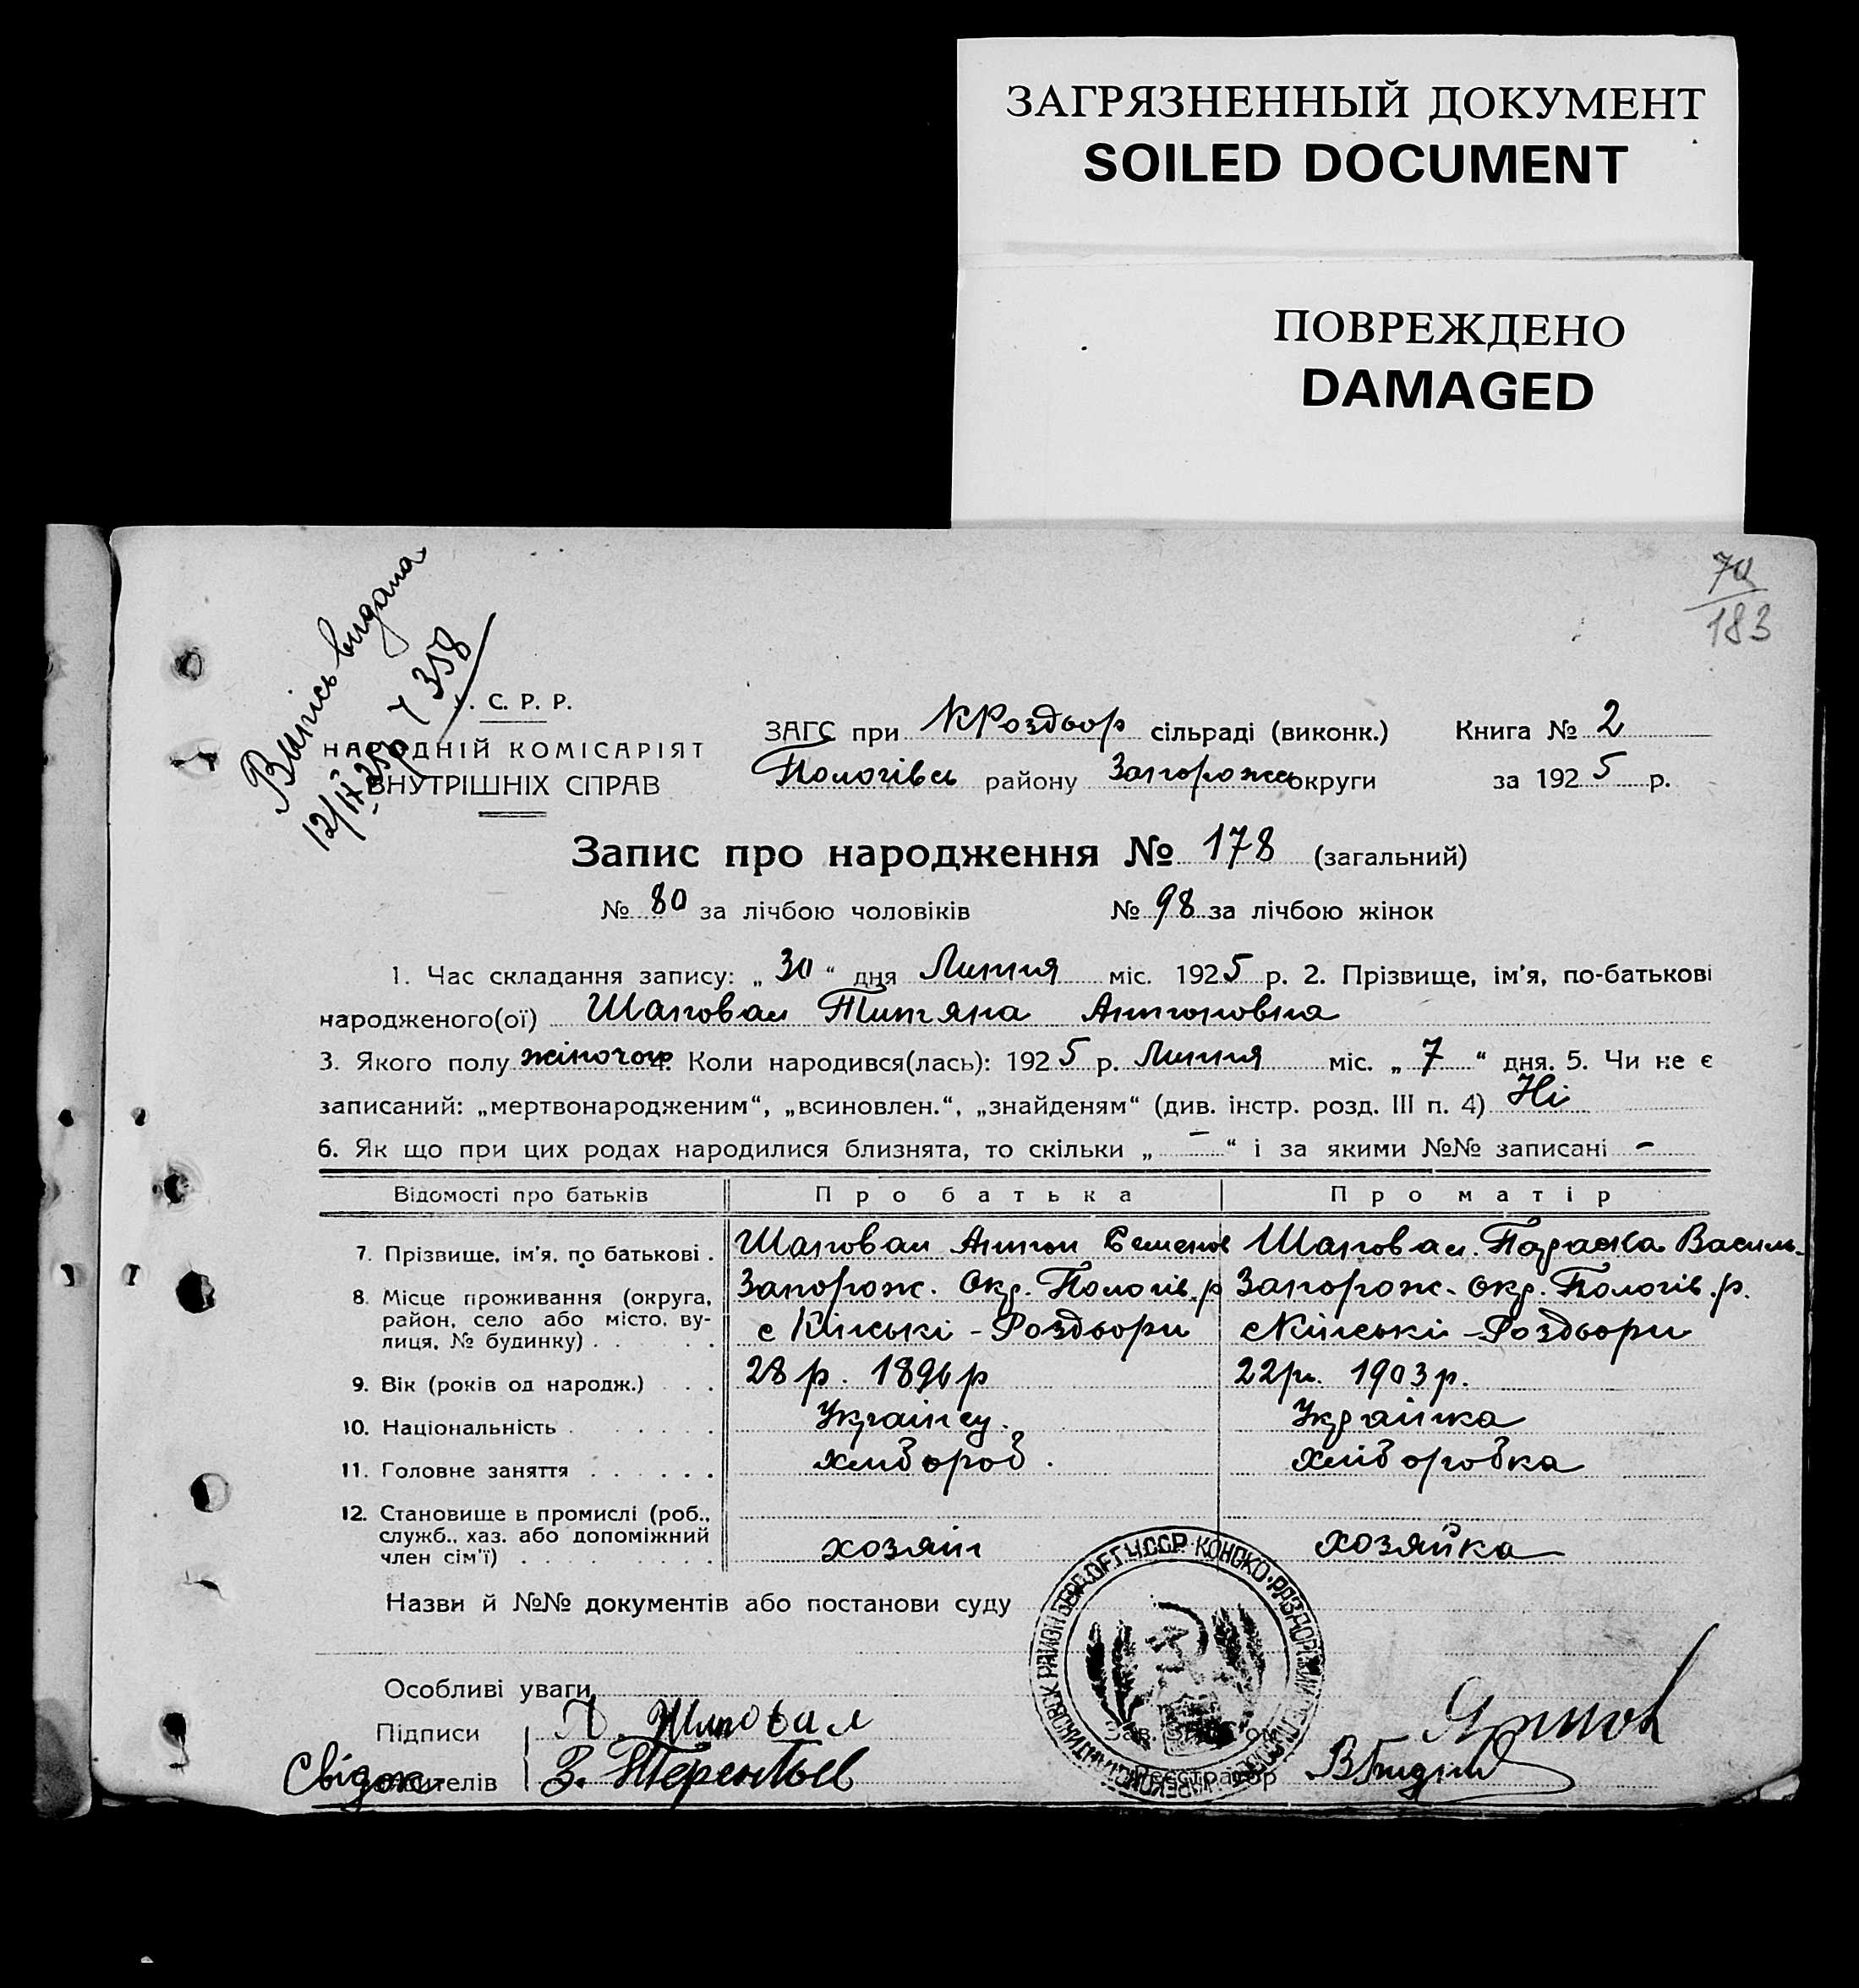 ЗАГРЯЗНЕННЫЙ ДОКУМЕНТ
SOILED DOCUMENT
ПОВРЕЖДЕНО
DAMAGED
70
183
Випись видана
12/IX 25р ч 358
. С. Р. Р.
НАРОДНІЙ КОМІСАРІЯТ
ВНУТРІШНІХ СПРАВ
ЗАГС при КРоздьор сільраді (виконк.) Книга № 2
Пологівсь району Запорожсь округи за 1925 р.
Запис про народження № 178 (загальний)
№ 80 за лічбою чоловіків № 98 за лічбою жінок
1. Час складання запису: „30“ дня Липня міс. 1925 р. 2. Прізвище, ім'я, по-батькові
народженого(ої) Шаповал Титяна Антоновна
3. Якого полу жіночого 4. Коли народився(лась): 1925 р. Липня міс. „7“ дня. 5. Чи не є
записаний: „мертвонародженим“, „всиновлен.“, „знайденям“ (див. інстр. розд. III п. 4) Ні
6. Як що при цих родах народилися близнята, то скільки „ — “ і за якими №№ записані —
Відомості про батьків Про батька Про матір
7. Прізвище, ім'я, по батькові . Шаповал Антон Семенов Шаповал Параска Василь.
8. Місце проживання (округа, район, село або місто, вулиця, № будинку) . Запорож. Окр. Пологів. р Запорож. Окр. Пологів. р.
с Кінські - Роздьори с Кінські - Роздьори
9. Вік (років од народж.) . . . 28 р. 1896 р 22 р. 1903 р.
10. Національність . Українец. Українка
11. Головне заняття . хлібороб. хліборобка
12. Становище в промислі (роб., служб., хаз. або допоміжний член сім'ї) . хозяин хозяйка
Назви й №№ документів або постанови суду
Особливі уваги
Підписи А. Шаповал
Свідок З. Терентьев
Реєстратор